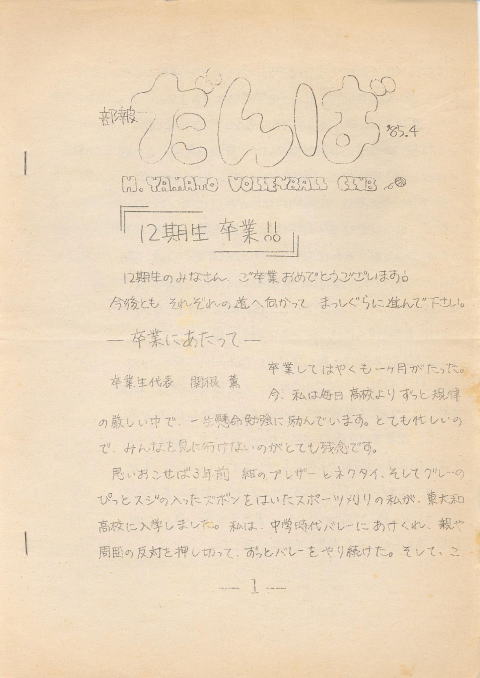 部報 だんば '85.4
H.YAMATO VOLLEYBALL CLUB
12期生 卒業!!
12期生のみなさん、ご卒業おめでとうございます。
今後とも それぞれの道へ向かって まっしぐらに進んで下さい。
― 卒業にあたって ―
卒業生代表 関根 薫
卒業してはやくも一ヶ月がたった。
今、私は毎日 高校よりずっと規律
の厳しい中で、一生懸命勉強に励んでいます。とても忙しいの
で、みんなを見に行けないのがとても残念です。
思いおこせば3年前 紺のブレザーとネクタイ、そしてグレーの
ぴっとスジの入ったズボンをはいたスポーツ刈りの私が、東大和
高校に入学しました。私は、中学時代バレーにあけくれ、親や
周囲の反対を押し切って、ずっとバレーをやり続けた。そして、こ
― 1 ―